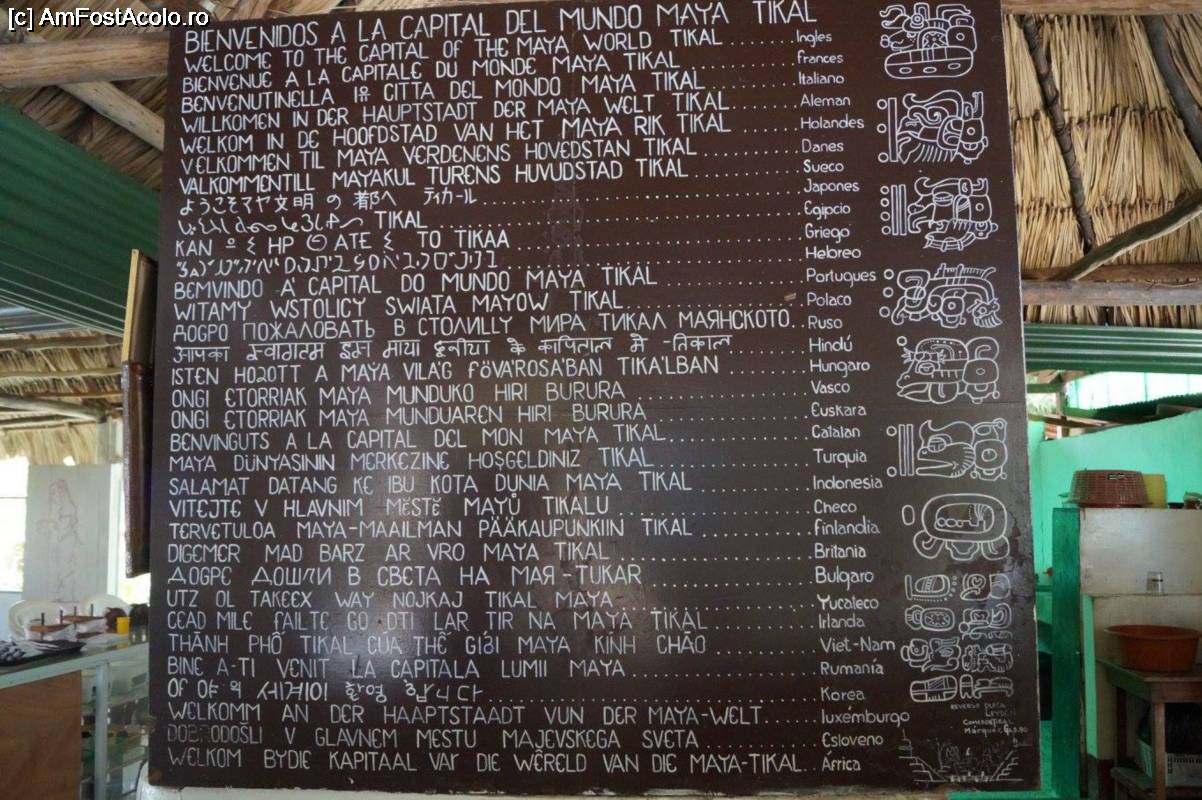 [c] AmFostAcolo.ro
BIENVENIDOS A LA CAPITAL DEL MUNDO MAYA TIKAL
WELCOME TO THE CAPITAL OF THE MAYA WORLD TIKAL ........ Ingles
BIENVENUE A LA CAPITALE DU MONDE MAYA TIKAL ........ Frances
BENVENUTINELLA CITTA DEL MONDO MAYA TIKAL ........ Italiano
WILLKOMEN IN DER HAUPTSTADT DER MAYA WELT TIKAL ........ Aleman
WELKOM IN DE HOOFDSTAD VAN HET MAYA RIK TIKAL ........ Holandes
VELKOMMEN TIL MAYA VERDENENS HOVEDSTAN TIKAL ........ Danes
VALKOMMENTILL MAYAKUL TURENS HUVUDSTAD TIKAL ........ Sueco
ようこそマヤ文明 の 都へ ティカール ........ Japones
TIKAL ........ Egipcio
KAN ΤΟ ΤΙΚΑΑ ........ Griego
Hebreo
BEMVINDO A' CAPITAL DO MUNDO MAYA TIKAL ........ Portugues
WITAMY WSTOLICY SWIATA MAYOW TIKAL ........ Polaco
ДОГРО ПОЖАЛОВАТЬ В СТОЛИЦУ МИРА ТИКАЛ МАЯНСКОТО.. Ruso
आपका स्वागतम इस माया दूनीया के कापिताल मे -तिकाल Hindú
ISTEN HOZOTT A MAYA VILÁG FÖVÁROSÁBAN TIKÁLBAN ........ Hungaro
ONGI ETORRIAK MAYA MUNDUKO HIRI BURURA ........ Vasco
ONGI ETORRIAK MAYA MUNDUAREN HIRI BURURA ........ Euskara
BENVINGUTS A LA CAPITAL DEL MON MAYA TIKAL ........ Catalan
MAYA DÜNYASININ MERKEZINE HOŞGELDINIZ TIKAL ........ Turquia
SALAMAT DATANG KE IBU KOTA DUNIA MAYA TIKAL ........ Indonesia
VITEJTE V HLAVNIM MĚSTĚ MAYŮ TIKALU ........ Checo
TERVETULOA MAYA-MAAILMAN PÄÄKAUPUNKIIN TIKAL ........ Finlandia
DIGEMER MAD BARZ AR VRO MAYA TIKAL ........ Britania
ДОБРЕ ДОШЛИ В СВЕТА НА МАЯ-TUKAR ........ Bulgaro
UTZ OL TAKEEX WAY NOJKAJ TIKAL MAYA ........ Yucateco
CEAD MILE FAILTE GO DTI LAR TIR NA MAYA TIKAL ........ Irlanda
THÀNH PHỐ TIKAL CỦA THẾ GIỚI MAYA KÍNH CHÀO ........ Viet-Nam
BINE A-TI VENIT LA CAPITALA LUMII MAYA ........ Rumanía
마야의 세계에 환영 합니다 ........ Korea
WELKOMM AN DER HAAPTSTAADT VUN DER MAYA-WELT ...... luxémburgo
DOBRODOŠLI V GLAVNEM MESTU MAJEVSKEGA SVETA ........ Esloveno
WELKOM BYDIE KAPITAAL VAY DIE WÊRELD VAN DIE MAYA-TIKAL.. África
REVERSO PLACA